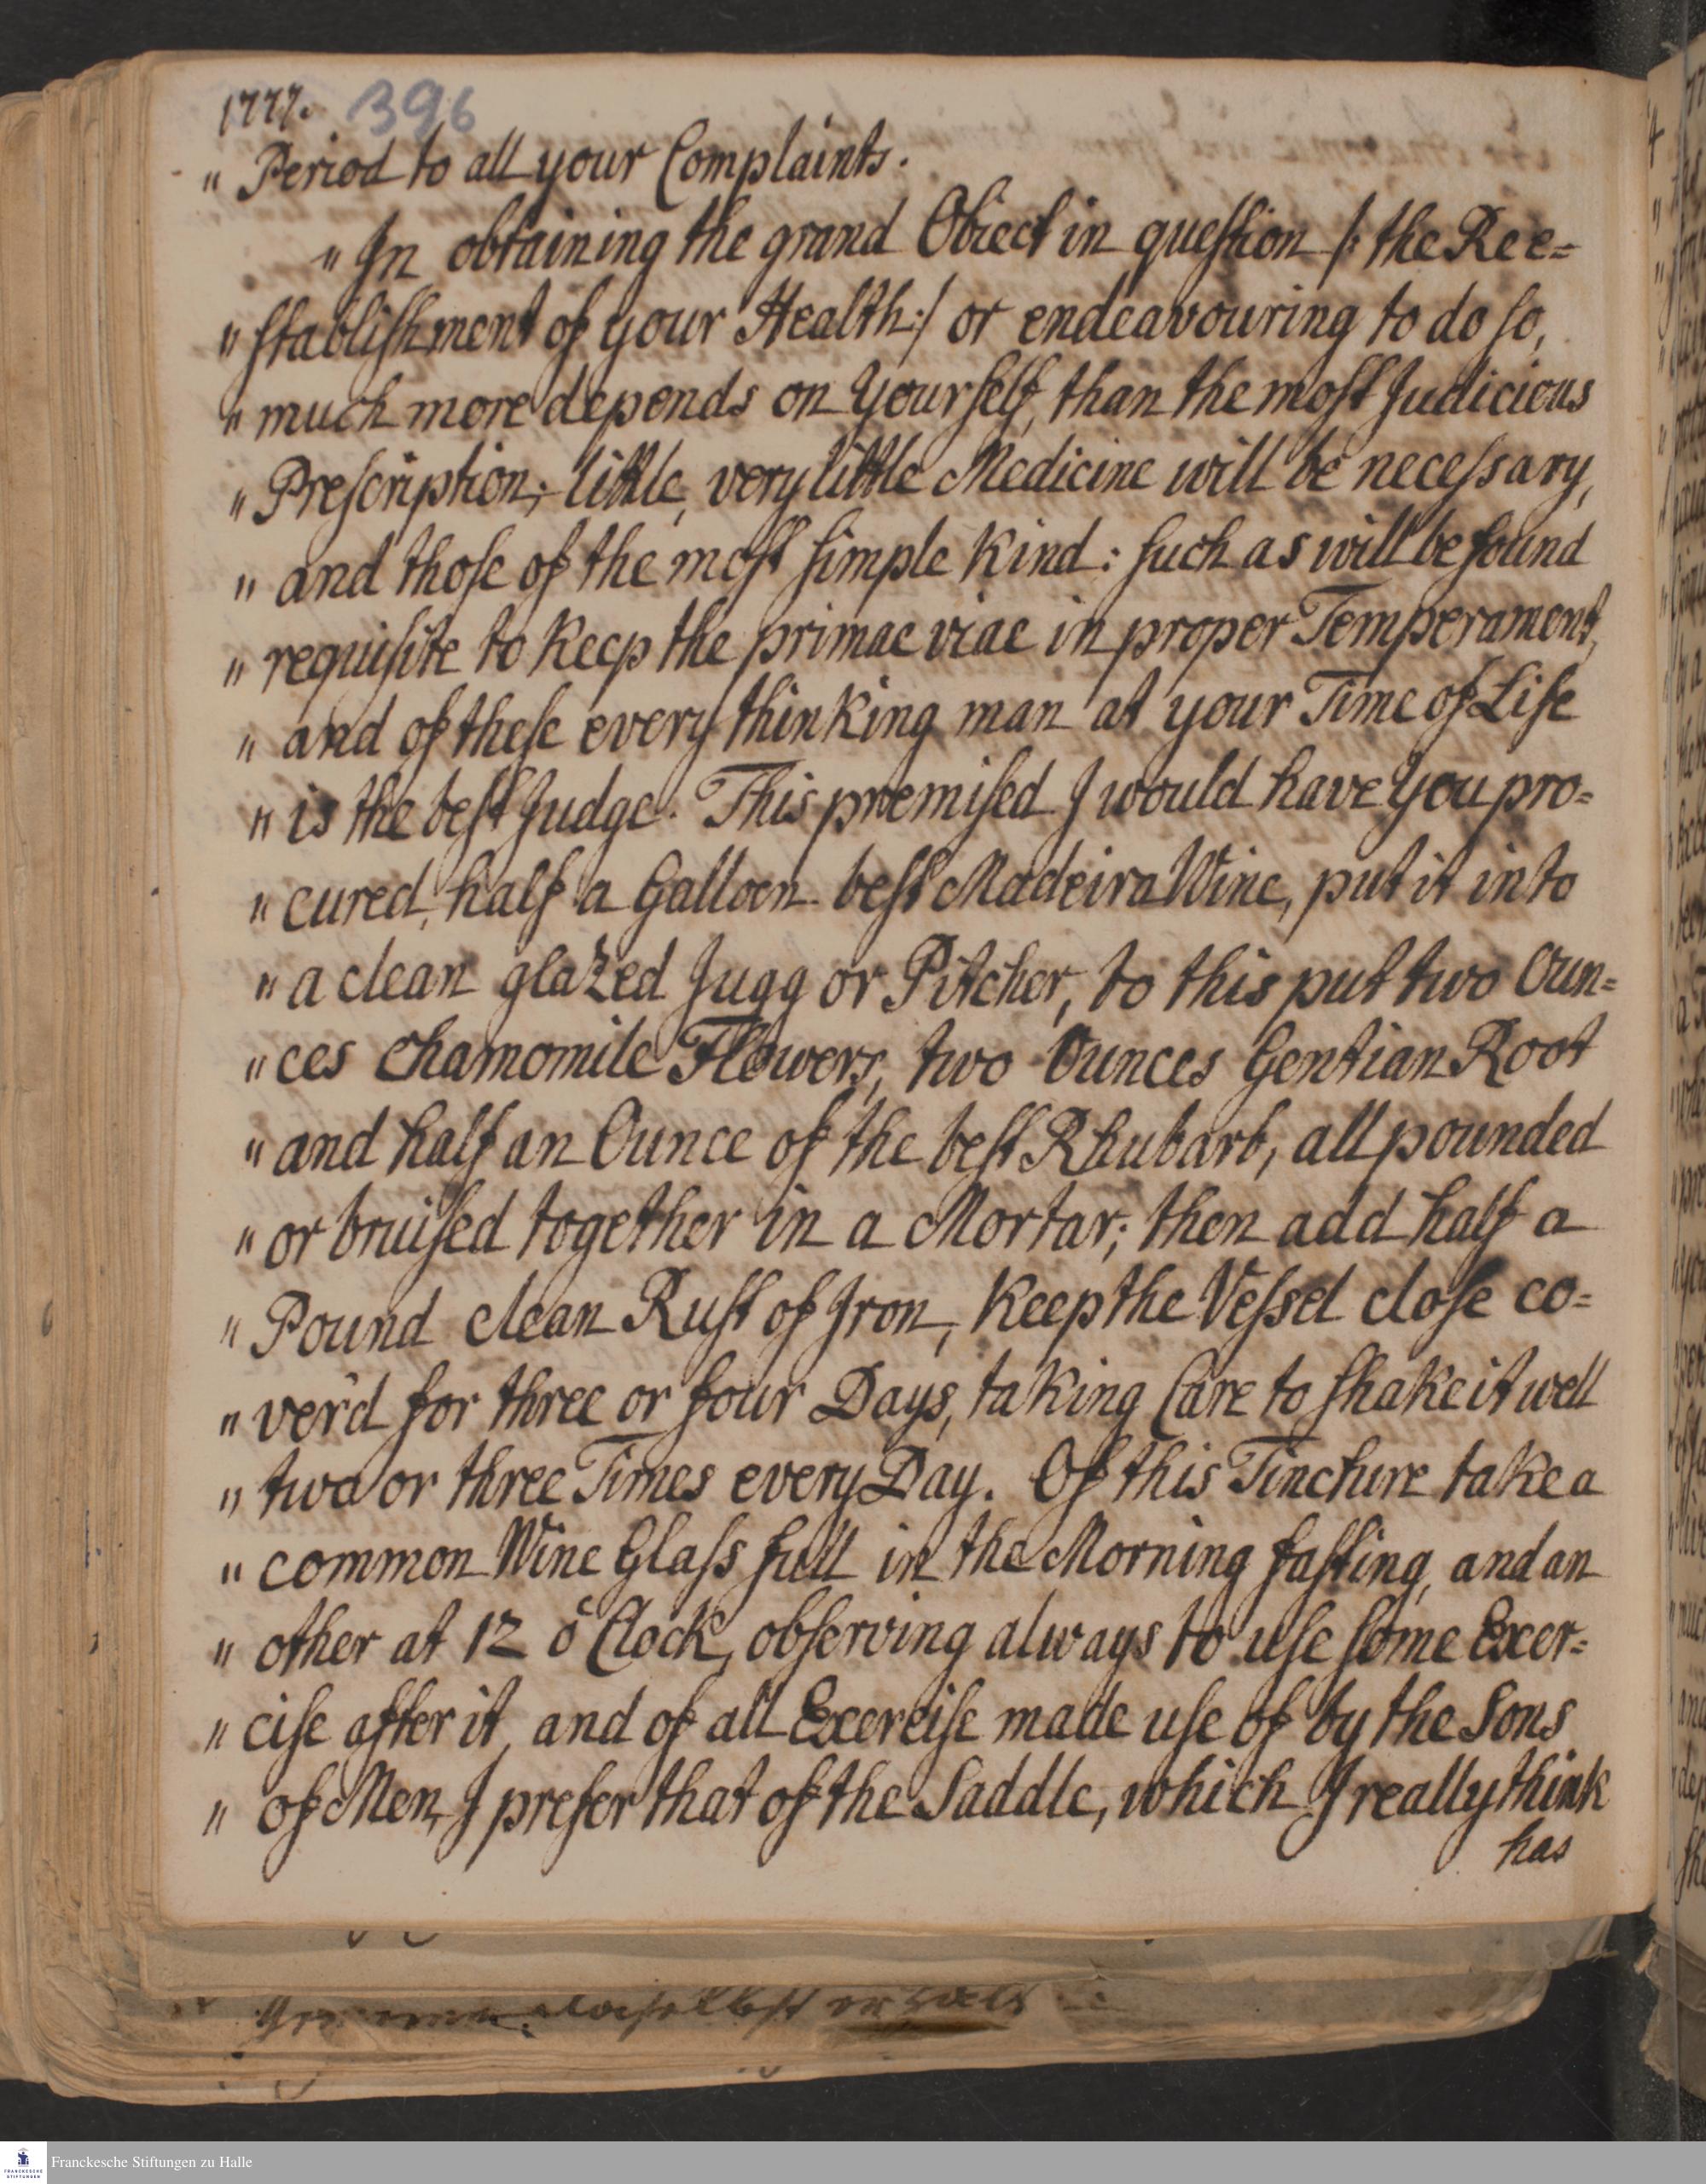 1777. 396
" Period to all your Complaints.
" In obtaining the grand Obiect in question /: the Ree=
" stablishment of your Health :/ or endeavouring to do so,
" much more depends on Yourself, than the most Judicious
" Prescription; little, very little Medicine will be necessary,
" and those of the most simple Kind: such as will be found
" requisite to Keep the primae viae in proper Temperament,
" and of these every thinKing man at your Time of Life
" is the best Judge. This premised I would have You pro=
" cured, half a Galloon best Madeira Wine, put it into
" a clean glazed Jugg or Pitcher, to this put two Oun=
" ces Chamomile Flowers, two Ounces Gentian Root
" and half an Ounce of the best Rhubarb, all pounded
" or bruised together in a Mortar; then add half a
" Pound clean Rust of Iron, Keep the Vessel close co=
" ver'd for three or four Days, taKing Care to shake it well
" two or three Times every Day. Of this Tincture take a
" common Wine Glass full in the Morning fasting, and an
" other at 12 o'Clock, observing always to use some Exer=
" cise after it, and of all Exercise made use of by the Sons
" of Men, I prefer that of the Saddle, which I really think
has
daselbst
Franckesche Stiftungen zu Halle
FRANCKESCHE
STIFTUNGEN